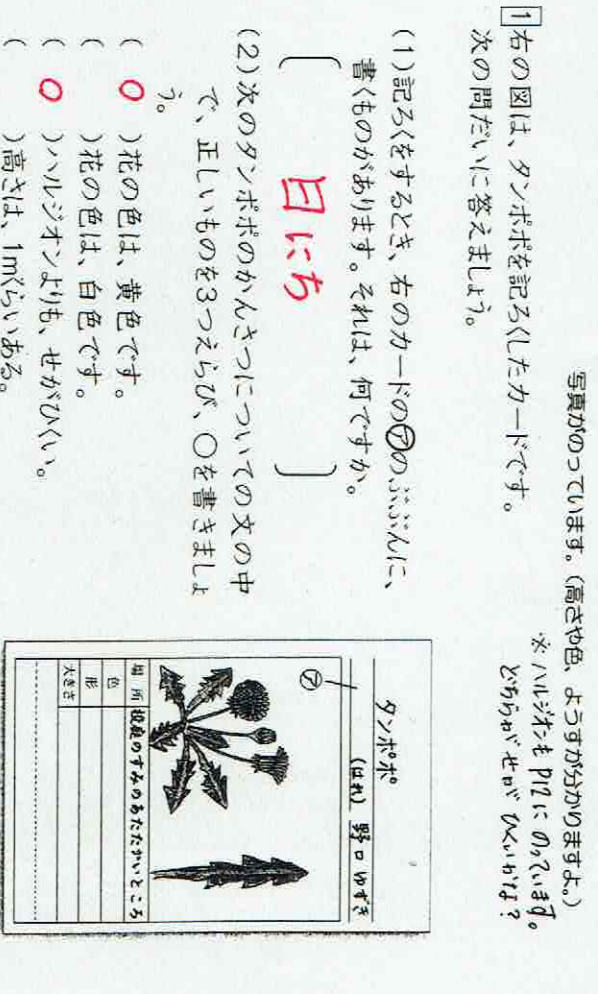 写真がのっています。（高さや色、ようすが分かりますよ。）
※ハルジオンも P12 に のっています。
どちらが せが ひくいかな？
1 右の図は、タンポポを記ろくしたカードです。
次の問だいに答えましょう。
(1)記ろくをするとき、右のカードの㋐のぶぶんに、
書くものがあります。それは、何ですか。
〔 日にち 〕
(2)次のタンポポのかんさつについての文の中
で、正しいものを3つえらび、〇を書きましょ
う。
( 〇 )花の色は、黄色です。
( )花の色は、白色です。
( 〇 )ハルジオンよりも、せがひくい。
( )高さは、1mくらいある。
タンポポ
(はれ) 野口 ゆずき
㋐
場所 校庭のすみのあたたかいところ
色
形
大きさ